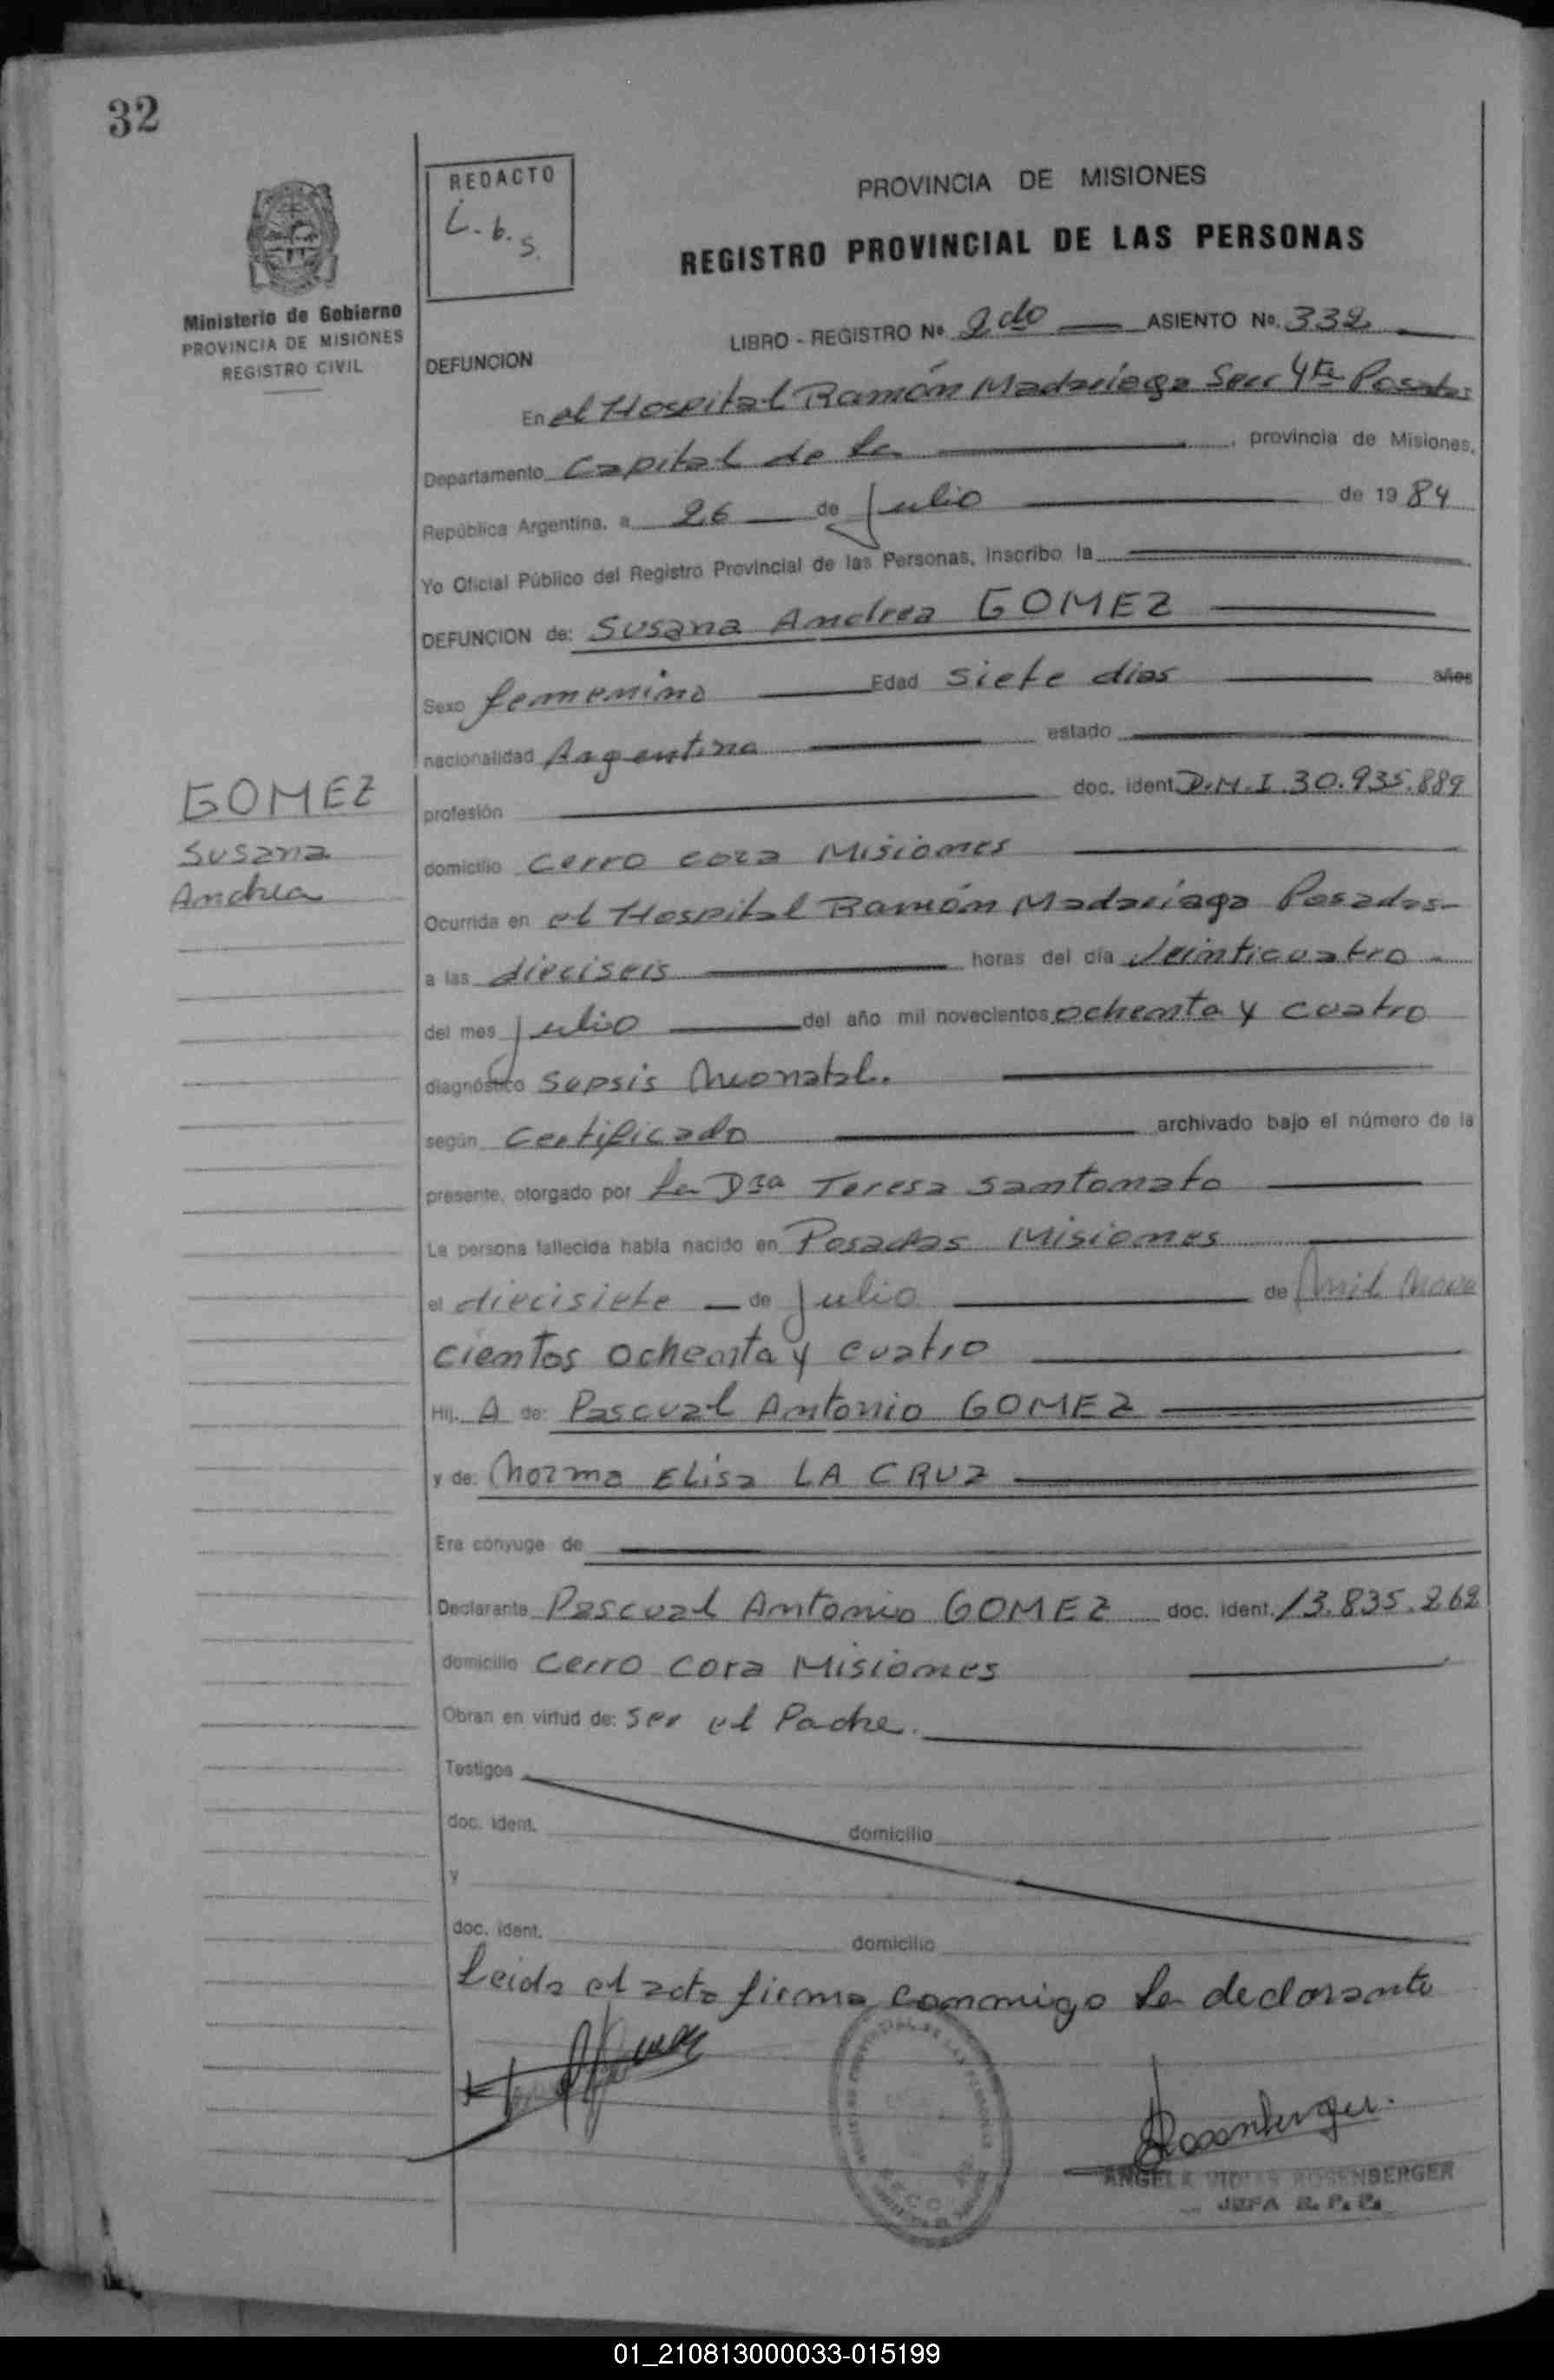 32
REDACTO
L. b. s.
PROVINCIA DE MISIONES
REGISTRO PROVINCIAL DE LAS PERSONAS
Ministerio de Gobierno
PROVINCIA DE MISIONES
REGISTRO CIVIL
LIBRO - REGISTRO Nº 2do ASIENTO Nº. 332
DEFUNCION
En el Hospital Ramón Madariaga Secc 4ta Posadas
Departamento Capital de la , provincia de Misiones,
República Argentina, a 26 de Julio de 1984
Yo Oficial Público del Registro Provincial de las Personas, inscribo la
DEFUNCION de: Susana Andrea GOMEZ
Sexo femenino Edad siete dias años
nacionalidad Argentina estado
GOMEZ
Susana
Andrea
profesión doc. ident. D.N.I. 30.935.889
domicilio Cerro cora Misiones
Ocurrida en el Hospital Ramón Madariaga Posadas-
a las dieciseis horas del día veinticuatro
del mes Julio del año mil novecientos ochenta y cuatro
diagnóstico Sepsis Neonatal.
según Certificado archivado bajo el número de la
presente, otorgado por La Dra Teresa Santomato
La persona fallecida había nacido en Posadas Misiones
el diecisiete de Julio de mil nove
cientos ochenta y cuatro
Hij. A de: Pascual Antonio GOMEZ
y de: Norma Elisa LA CRUZ
Era cónyuge de
Declarante Pascual Antonio GOMEZ doc. ident. 13.835.262
domicilio Cerro Cora Misiones
Obran en virtud de: ser el Padre.
Testigos
doc. ident. domicilio
y
doc. ident. domicilio
Leida el acta firma conmigo la declarante
Rosenberger.
ROSENBERGER
JEFA R. P. P.
01_210813000033-015199